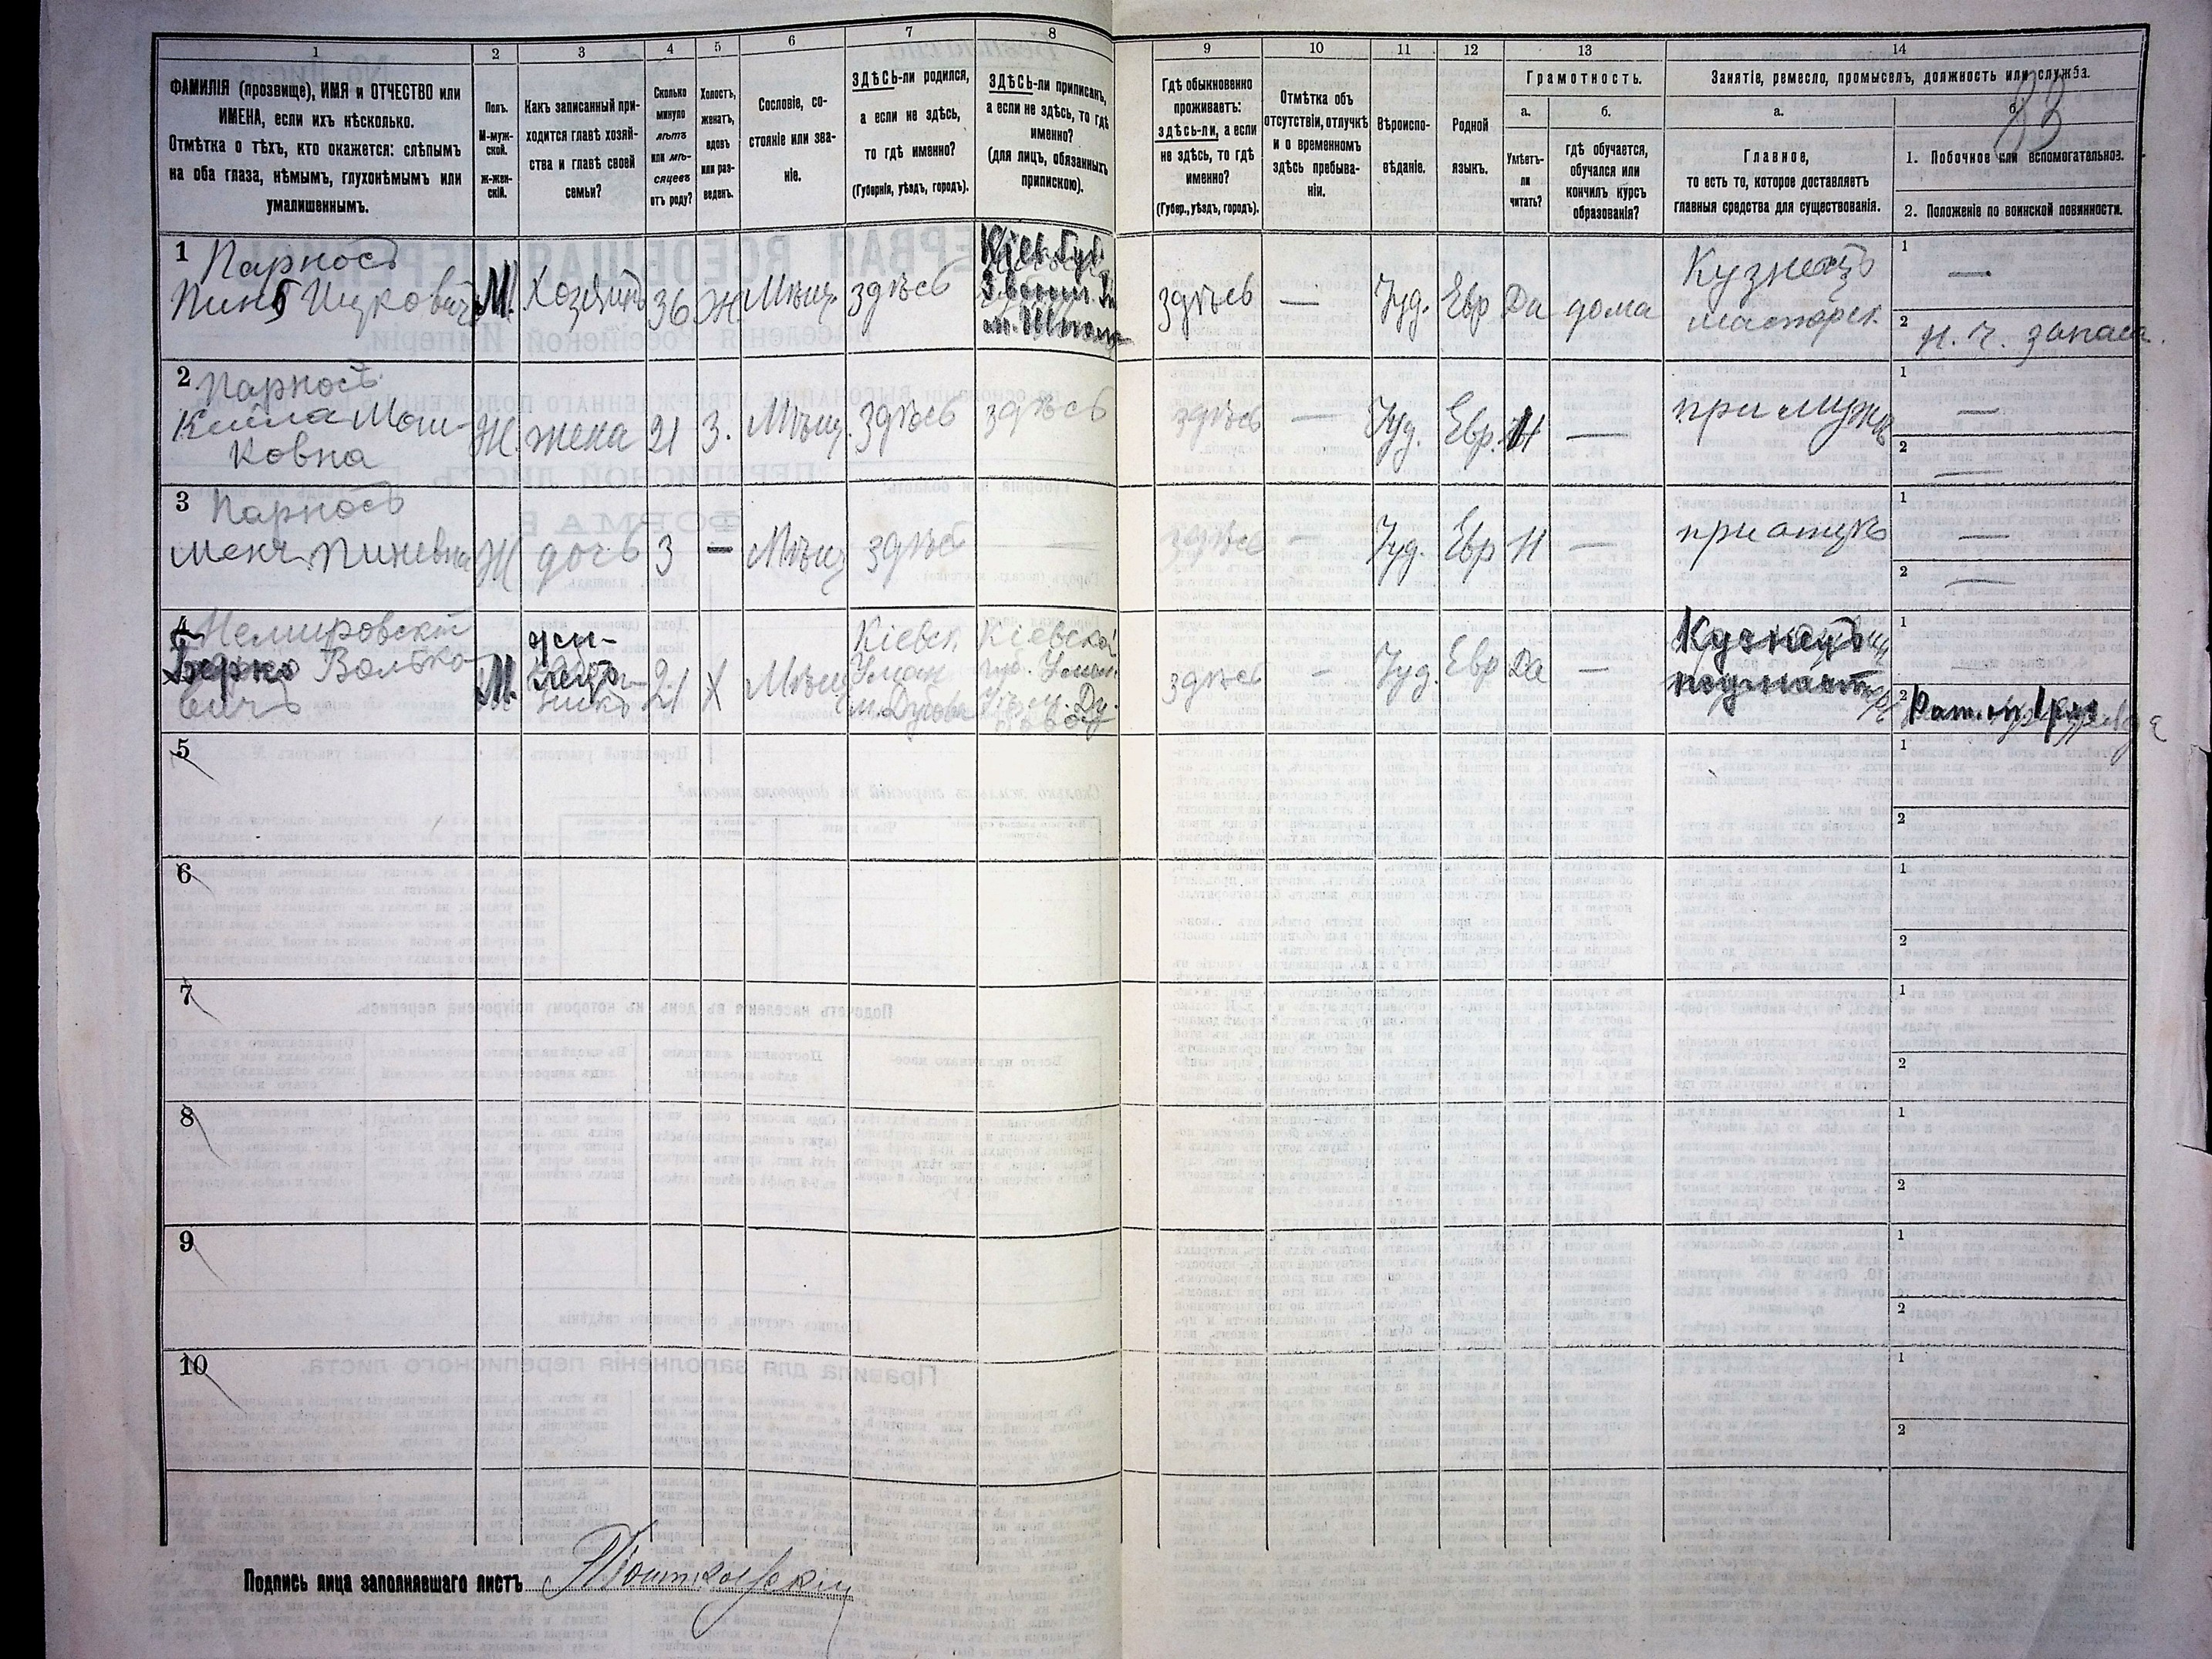 1
2
3
4
5
6
7
8
9
10
11
12
13
14
ФАМИЛІЯ (прозвище), ИМЯ и ОТЧЕСТВО или
ИМЕНА, если ихъ нѣсколько.
Отмѣтка о тѣхъ, кто окажется: слѣпымъ
на оба глаза, нѣмымъ, глухонѣмымъ или
умалишеннымъ.
Полъ.
М-муж-
ской.
Ж-жен-
скій.
Какъ записанный при-
ходится главѣ хозяй-
ства и главѣ своей
семьи?
Сколько
минуло
лѣтъ
или мѣ-
сяцевъ
отъ роду?
Холостъ,
женатъ,
вдовъ
или раз-
веденъ.
Сословіе, со-
стояніе или зва-
ніе.
ЗДѢСЬ-ли родился,
а если не здѣсь,
то гдѣ именно?
(Губернія, уѣздъ, городъ).
ЗДѢСЬ-ли приписанъ,
а если не здѣсь, то гдѣ
именно?
(для лицъ, обязанныхъ
припискою).
Гдѣ обыкновенно
проживаетъ:
здѣсь-ли, а если
не здѣсь, то гдѣ
именно?
(Губер., уѣздъ, городъ).
Отмѣтка объ
отсутствіи, отлучкѣ
и о временномъ
здѣсь пребыва-
ніи.
Вѣроиспо-
вѣданіе.
Родной
языкъ.
Грамотность.
а.
Умѣетъ-
ли
читать?
б.
гдѣ обучается,
обучался или
кончилъ курсъ
образованія?
Занятіе, ремесло, промыселъ, должность или служба.
а.
Главное,
то есть то, которое доставляетъ
главныя средства для существованія.
б.
1. Побочное или вспомогательное.
2. Положеніе по воинской повинности.
1
Парность
Ицковичъ
М.
Хозяинъ
36
Ж
Мѣщ.
здѣсь
Кіев. Губ.
здѣсь
—
Іуд.
Евр
Да
дома
Кузнецъ
1
—
2
н. ч. запаса.
2
Парность
Мош-
ковна
Ж.
жена
21
З.
Мѣщ.
здѣсь
здѣсь
здѣсь
—
Іуд.
Евр.
Н
—
при мужѣ
1
—
2
—
3
Парность
Пиневна
Ж
дочь
3
—
Мѣщ
здѣсь
—
здѣсь
—
Іуд.
Евр
Н
—
при отцѣ
1
—
2
—
4
Немировскій
Берко Волько-
вичъ
М.
21
Х
Мѣщ
Кіевск.
Уман
м. Дубова
Кіевской
губ. Уман.
здѣсь
—
Іуд.
Евр
Да
—
Кузнецъ
1
2
5
1
2
6
1
2
7
1
2
8
1
2
9
1
2
10
1
2
Подпись лица заполнявшаго листъ